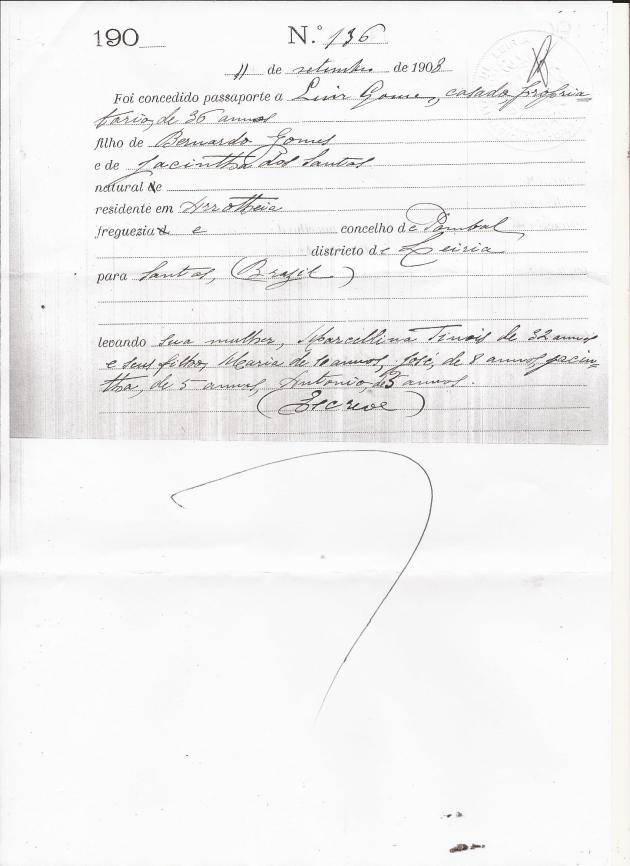 190__ N.º 136
11 de setembro de 1908
Foi concedido passaporte a Luiz Gomes, casado, proprie-
tario, de 36 annos
filho de Bernardo Gomes
e de Jacintha dos Santos
natural de
residente em Arrotheia
freguezia d e concelho de Pombal
districto de Leiria
para Santos, (Brazil)
levando sua mulher, Marcellina de 32 annos
e seus filhos, Maria de 10 annos, José, de 8 annos, Jacin-
tha, de 5 annos, Antonio, de 3 annos.
(Escreve)